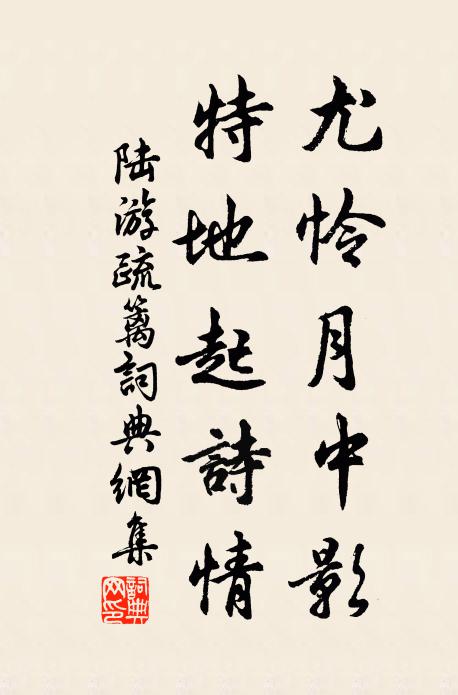 尤怜月中影
特地起詩情
陸游疏篱詞典網集
詞典網印